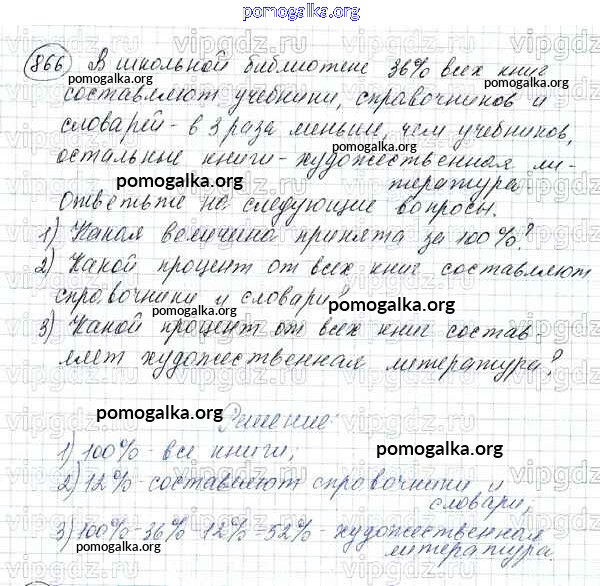 pomogalka.org
866 В школьной библиотеке 36% всех книг
pomogalka.org pomogalka.org
составляют учебники, справочников и
словарей - в 3 раза меньше, чем учебников,
pomogalka.org
остальные книги - художественная ли-
pomogalka.org тература.
Ответьте на следующие вопросы.
1) Какая величина принята за 100%?
pomogalka.org
2) Какой процент от всех книг составляют
справочники и словари?
pomogalka.org
3) Какой процент от всех книг состав-
pomogalka.org
ляет художественная литература?
pomogalka.org Решение:
1) 100% - все книги;
pomogalka.org
2) 12% - составляют справочники и
словари;
pomogalka.org
3) 100% - 36% - 12% = 52% - художественная
литература.
pomogalka.org